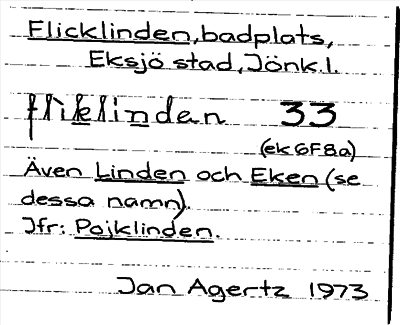 Flicklinden, badplats,
Eksjö stad, Jönk.l.
fliklindan 33
(ek 6F8a)
Även Linden och Eken (se
dessa namn).
Jfr: Pojklinden.
Jan Agertz 1973